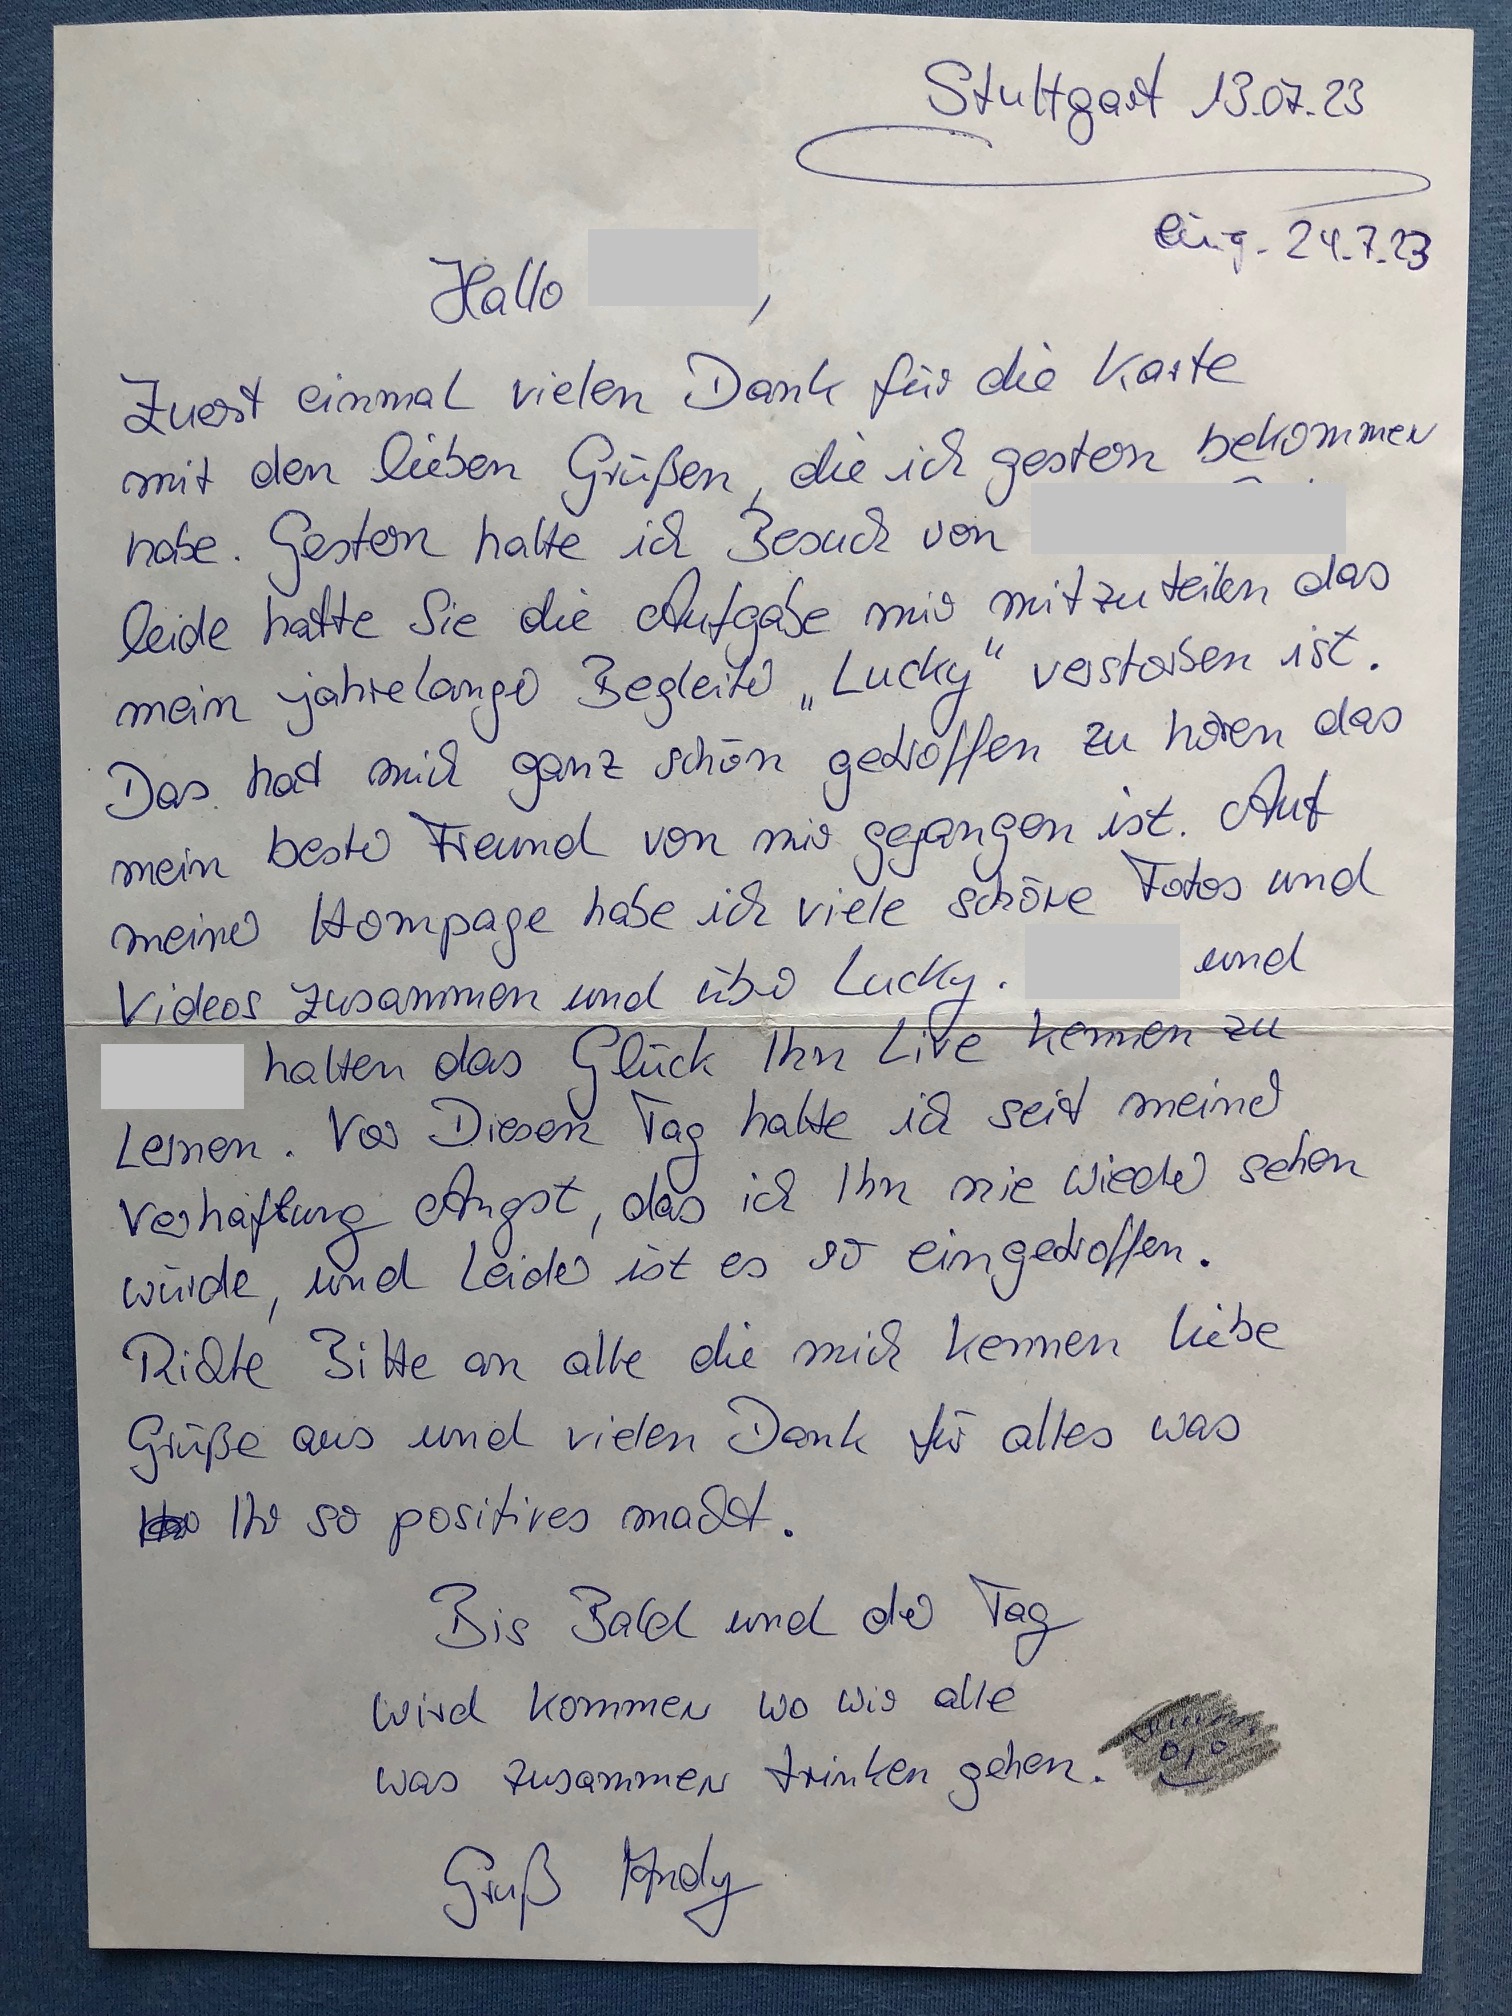 Stuttgart 13.07.23
eing. 24.7.23
Hallo ,
Zuerst einmal vielen Dank für die Karte
mit den lieben Grüßen, die ich gestern bekommen
habe. Gestern hatte ich Besuch von
leide hatte Sie die Aufgabe mir mitzuteilen das
mein jahrelanger Begleiter „Lucky“ verstorben ist.
Das hat mich ganz schön getroffen zu hören das
mein bester Freund von mir gegangen ist. Auf
meiner Hompage habe ich viele schöne Fotos und
Videos zusammen und über Lucky. und
hatten das Glück Ihn Live kennen zu
Lernen. Vor Diesen Tag hatte ich seit meiner
Verhaftung Angst, das ich Ihn nie wieder sehen
würde, und Leider ist es so eingetroffen.
Richte Bitte an alle die mich kennen liebe
Grüße aus und vielen Dank für alles was
Ihr so positives macht.
Bis Bald und der Tag
wird kommen wo wir alle
was zusammen trinken gehen.
Gruß Andy